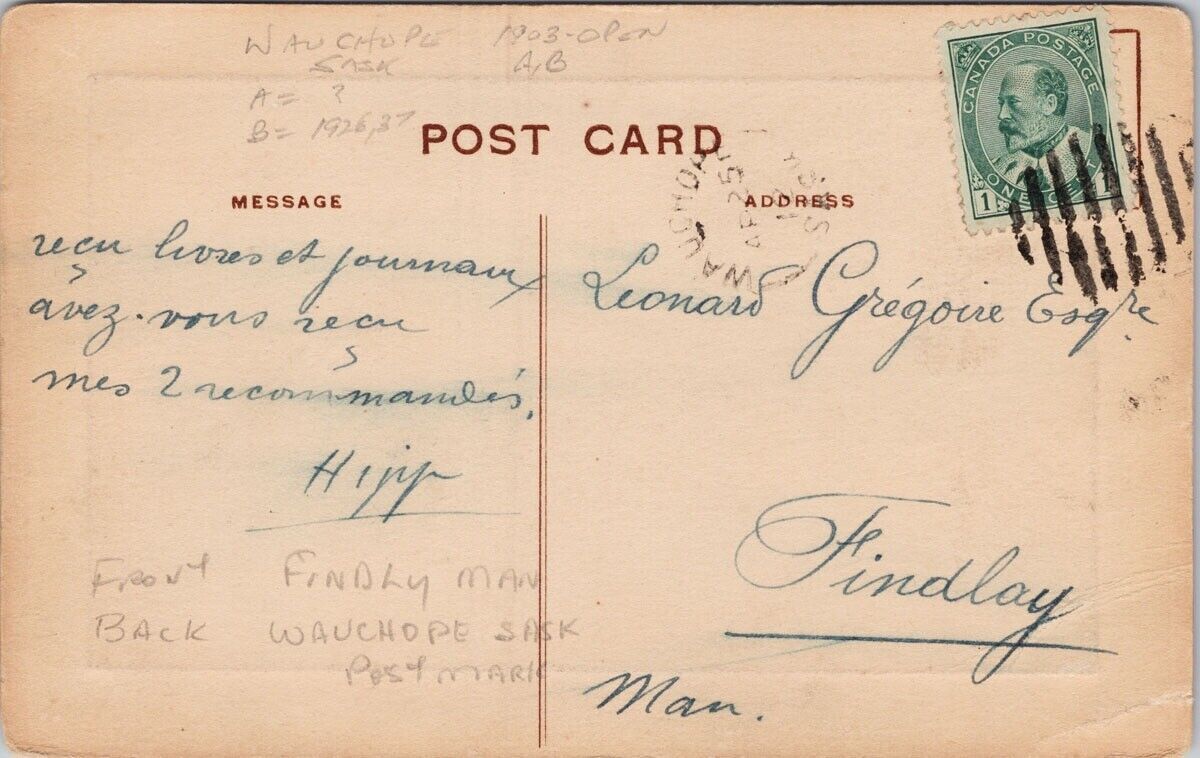 WAUCHOPE 1903-OPEN
SASK A,B
A = ?
B = 1926,37
POST CARD
CANADA POSTAGE
ONE CENT
1 1
WAUCHOPE
AP 25
12
SASK
MESSAGE
ADDRESS
reçu livres et journaux
avez-vous reçu
mes 2 recommandés.
Hipp
Leonard Grégoire Esqre
Findlay
Man.
FRONT FINDLY MAN
BACK WAUCHOPE SASK
POST MARK